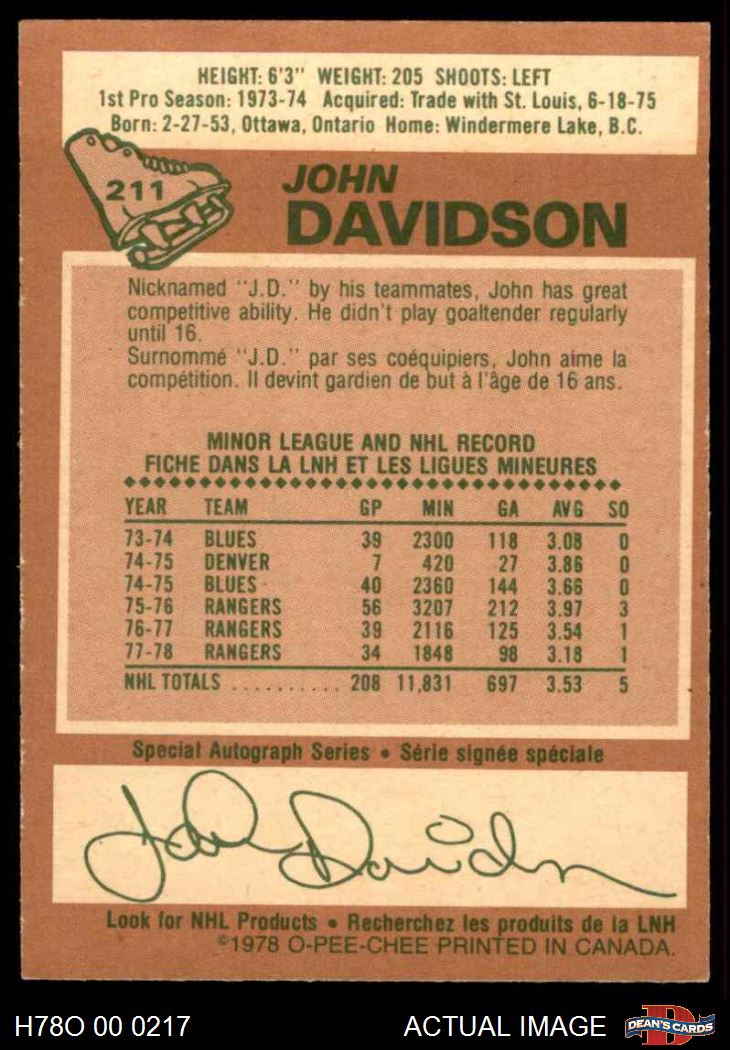 HEIGHT: 6'3" WEIGHT: 205 SHOOTS: LEFT
1st Pro Season: 1973-74 Acquired: Trade with St. Louis, 6-18-75
Born: 2-27-53, Ottawa, Ontario Home: Windermere Lake, B.C.
211
JOHN
DAVIDSON
Nicknamed "J.D." by his teammates, John has great
competitive ability. He didn't play goaltender regularly
until 16.
Surnommé "J.D." par ses coéquipiers, John aime la
compétition. Il devint gardien de but à l'âge de 16 ans.
MINOR LEAGUE AND NHL RECORD
FICHE DANS LA LNH ET LES LIGUES MINEURES
YEAR TEAM GP MIN GA AVG SO
73-74 BLUES 39 2300 118 3.08 0
74-75 DENVER 7 420 27 3.86 0
74-75 BLUES 40 2360 144 3.66 0
75-76 RANGERS 56 3207 212 3.97 3
76-77 RANGERS 39 2116 125 3.54 1
77-78 RANGERS 34 1848 98 3.18 1
NHL TOTALS .......... 208 11,831 697 3.53 5
Special Autograph Series • Série signée spéciale
John Davidson
Look for NHL Products • Recherchez les produits de la LNH
©1978 O-PEE-CHEE PRINTED IN CANADA.
H78O 00 0217 ACTUAL IMAGE D DEAN'S CARDS